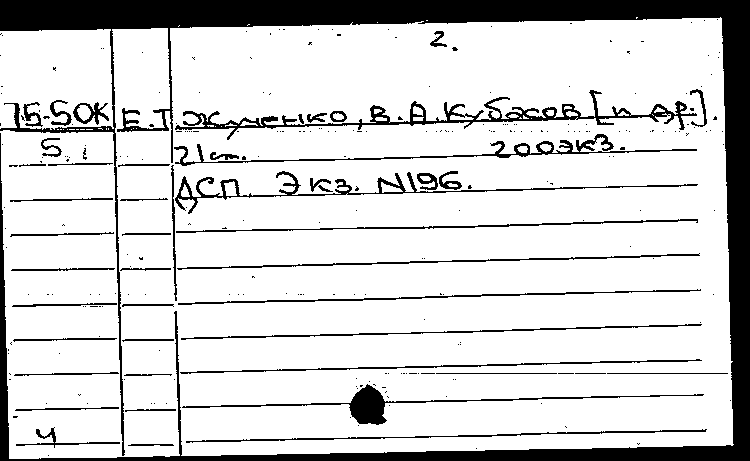 2.
75-50К Е.Т. Жученко, В.А. Кубасов [и др.].
5. 21 см. 200 экз.
ДСП. Экз. N196.
4